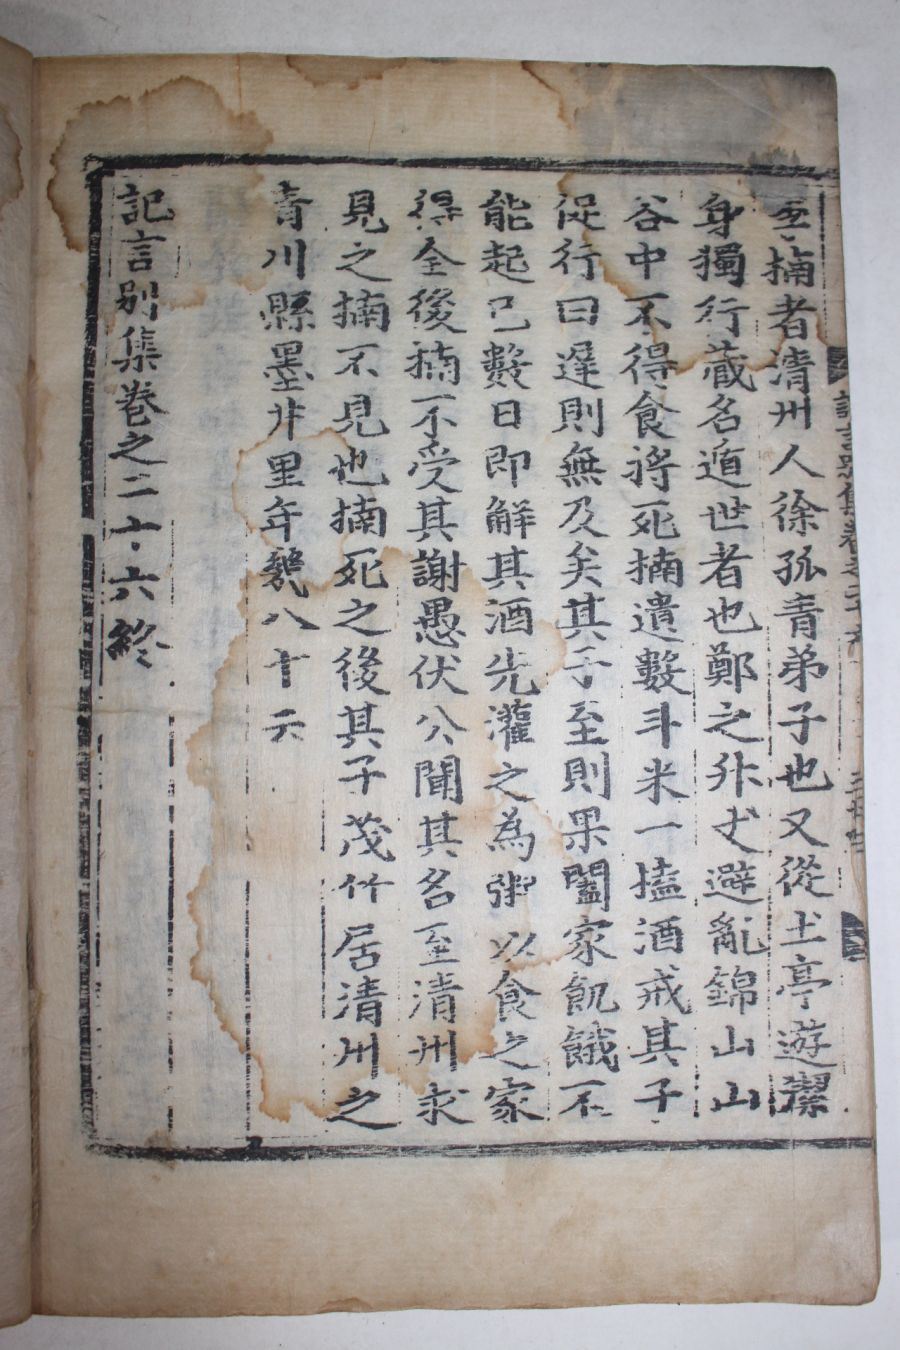 至楠者淸州人徐孤青弟子也又從土亭遊潔
身獨行藏名遁世者也鄭之升丈避亂錦山山
谷中不得食將死楠遺數斗米一榼酒戒其子
促行曰遲則無及矣其子至則果闔家飢餓不
能起已數日即解其酒先灌之為粥以食之家
得全後楠不受其謝愚伏公聞其名至清州求
見之楠不見也楠死之後其子茂竹居清州之
青川縣墨井里年幾八十云
記言別集卷之二十六終